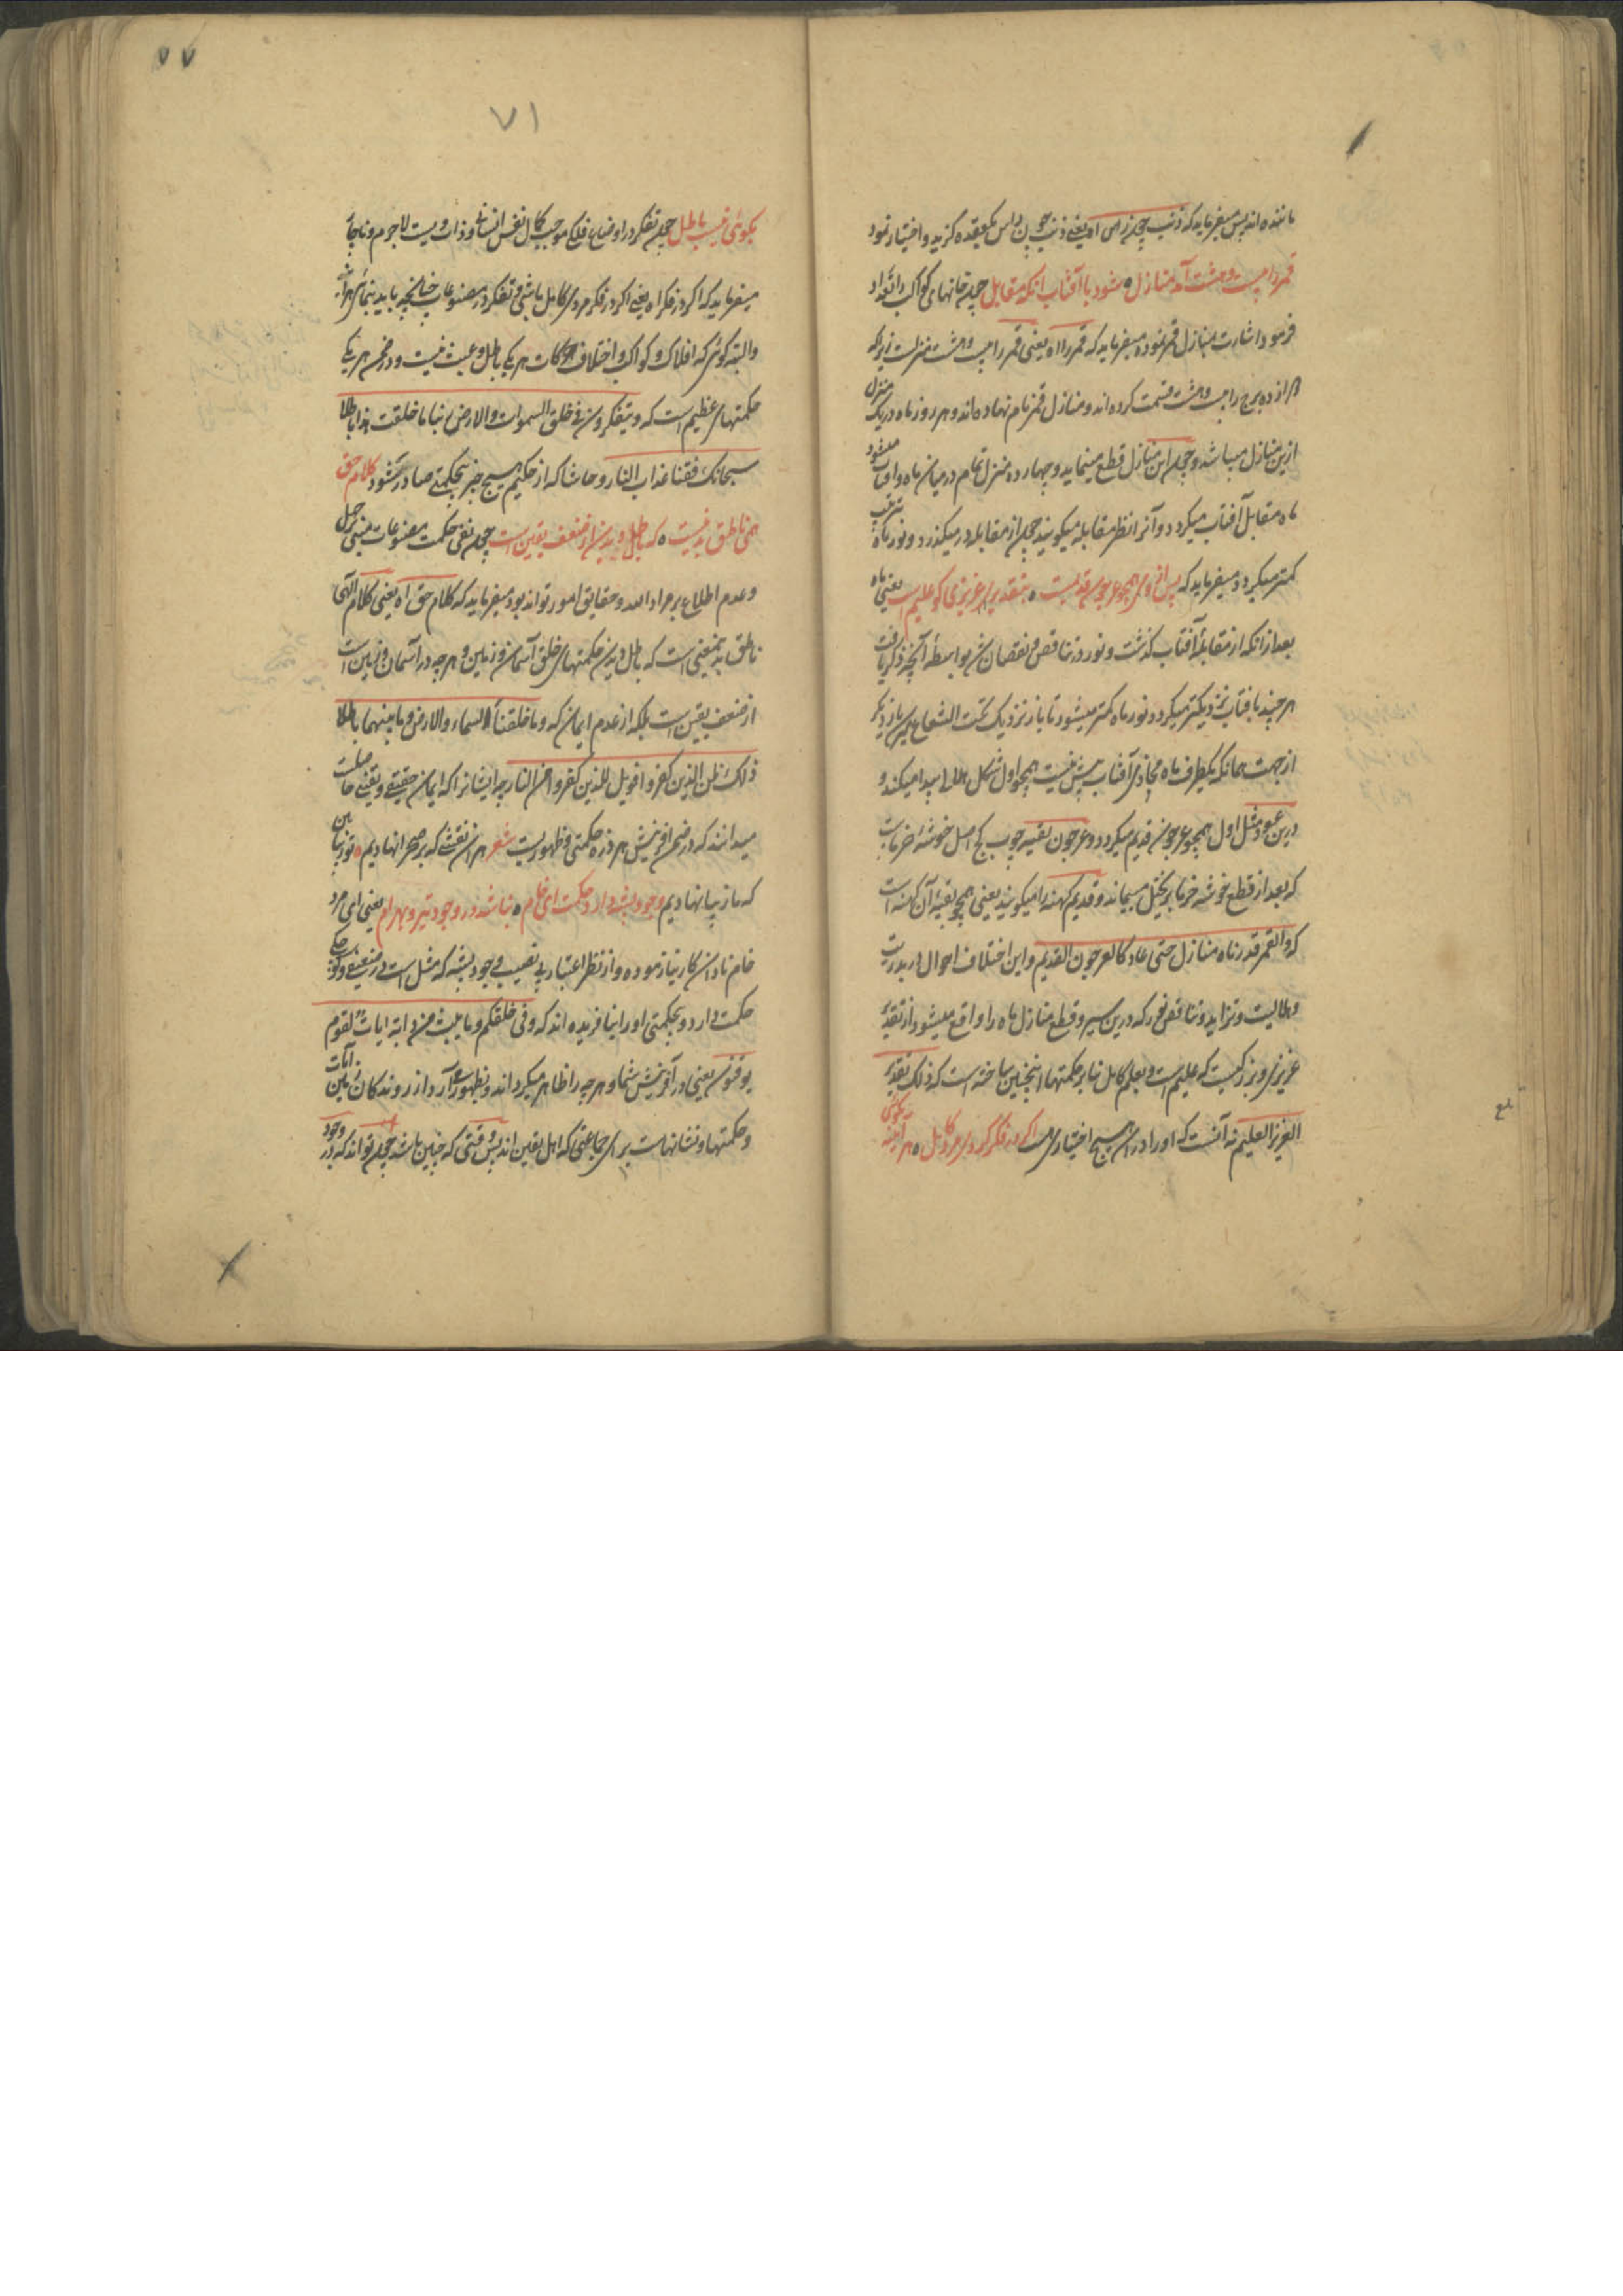 مانده اند پس میفرماید که ذنب چون راس اه یعنی ذنب چون راس یکعقده گزید و اختیار نمود
قمر را بیست و هشت آمد منازل ه شود با آفتاب آنکه مقابل چون خانهای کواکب را تعداد
فرمود اشارت بمنازل قمر نموده میفرماید که قمر را اه یعنی قمر را بیست و هشت منزلست زیراکه
دوازده برج را بیست و هشت قسمت کرده اند و منازل قمر نام نهاده اند و هر روز ماه در یک منزل
ازین منازل میباشد و چون این منازل قطع مینماید و چهارده منزل تمام در میان ماه و آفتاب میشود
ماه مقابل آفتاب میگردد و آنرا نظر مقابله میگویند چون از مقابله در میگذرد و نور ماه
کمتر میگردد میفرماید که پس از وی همچو عرجون قدیمست ه بتقدیر عزیزی کو علیم است یعنی ماه
بعد از آنکه از مقابلهٔ آفتاب گذشت و نور در تناقص و نقصان بواسطهٔ آنچه ذکر یافت
هر چند بآفتاب نزدیکتر میگردد نور ماه کمتر میشود تا باز نزدیک تحت الشعاع
از جهت همانکه یکطرف ماه محاذی آفتاب بیش نیست همچو اول شکل هلالی پیدا میکند و
درین عود مثل اول همچو عرجون قدیم میگردد و عرجون بقیه چوب کج اصل خوشهٔ خرماست
که بعد از قطع خوشه خرما بر نخیل میماند و قدیم کهنه را میگویند یعنی همچو بقیهٔ آن کهنه است
که والقمر قدرناه منازل حتی عاد کالعرجون القدیم و این اختلاف احوال از بدریت
و هلالیت و تزاید و تناقص نور که درین سیر و قطع منازل ماه را واقع میشود از تقدیر
عزیزی و بزرگیست که علیم است و بعلم کامل بنا بر حکمتها اینچنین ساخته است که ذلک تقدیر
العزیز العلیم نه آنست که او را در آن هیچ اختیاری هست اگر در فکر گردی مرد کامل ه هر آینه که گوئی
۷۷
۷۱
بگوئی نیست باطل چون تفکر در اوضاع فلکی موجب کمال نفس انسانی و ذات ویست لاجرم
میفرماید که اگر در فکر اه یعنی اگر در فکر مردی کامل باشی و تفکر در مصنوعات چنانچه باید بنمائی هرآینه
والبته گوئی که افلاک و کواکب و اختلاف حرکات هر یکی باطل و عبث نیست و در ضمن هر یکی
حکمتهای عظیم است که و یتفکرون فی خلق السموات والارض ربنا ما خلقت هذا باطلا
سبحانک فقنا عذاب النار و حاشا که از حکیم هیچ چیز بیحکمتی صادر شود کلام حق
همی ناطق بدینست ه که باطل دیدن از ضعف یقین است چون نفی حکمت مصنوعات مبنی بر جهل
و عدم اطلاع بر مراد الله و حقایق امور تواند بود میفرماید که کلام حق اه یعنی کلام الهی
ناطق بدینمعنی است که باطل دیدن حکمتهای خلق آسمان و زمین و هر چه در آسمان و زمین است
از ضعف یقین است بلکه از عدم ایمان که و ما خلقنا السماء والارض و ما بینهما باطلا
ذلک ظن الذین کفروا فویل للذین کفروا من النار چه ایشانرا که ایمان حقیقی و یقینی حاصلست
میدانند که در ضمن آفرینش هر ذره حکمتی و ظهوریست شعر هر آن نقشی که بر صحرا نهادیم ه تو زیبا بین
که ما زیبا نهادیم وجود پشه دارد حکمت ای خام ه نباشد در وجود تیر و بهرام یعنی ای مرد
خام نادان کار نیازموده و از نظر اعتبار بی نصیب وجود پشه که مثل است در ضعیفی و
حکمت دارد و بیحکمتی او را نیافریده اند که و فی خلقکم و ما یبث من دابة ایات لقوم
یوقنون یعنی در آفرینش شما و هر چه را ظاهر میگرداند و بظهور می آرد از روندگان زمین آیات
و حکمتها و نشانهاست برای جماعتی که اهل یقین اند پس وقتی که چنین باشد چون تواند که در وجود